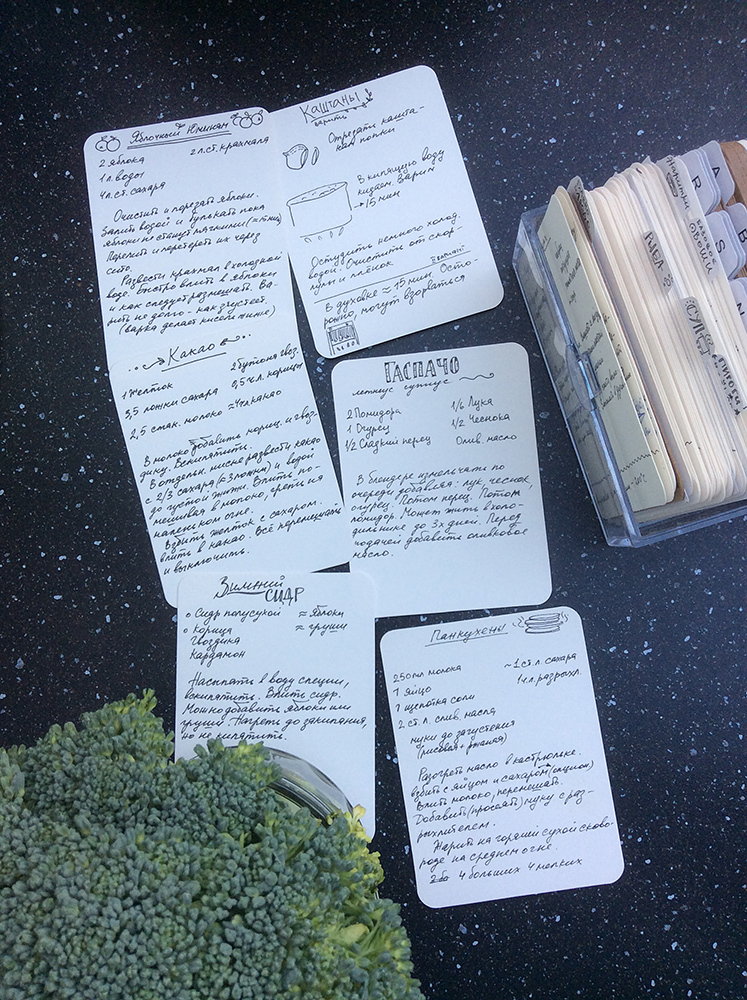 Яблочный Кисель
2 яблока
2 л.ст. крахмала
1 л. воды
4 л.ст. сахара
Очистить и порезать яблоки.
Залить водой и булькать пока
яблоки не станут мягкими
Перелить и перетереть их через
сито.
Развести крахмал в холодной
воде. Быстро влить в яблоки
и как следует размешать. Ва-
рить не долго - как загустеет.
(варка делает кисель жиже)
Какао
1 желток
2 бутона гвоз.
3,5 ложки сахара
0,5 ч.л. корицы
2,5 стак. молоко
≈ 4 чл какао
В молоко добавить кориц. и гвоз-
дику. Вскипятить.
В отдельн. миске развести какао
с 2/3 сахара (≈3 ложки) и водой
до густой жижи. Влить по-
мешивая в молоко, греть на
маленьком огне.
Взбить желток с сахаром.
Влить в какао. Всё перемешать
и выключить.
Каштаны
варить
Отрезать кашта-
нам попки
В кипящую воду
кидаем. Варим
≈ 15 мин
Остудить немного холод.
водой. Очистить от скор-
лупы и плёнок
В духовке ≈ 15 мин. Осто-
рожно, могут взорваться
ГАСПАЧО
летний супчик
2 Помидора
1/6 Лука
1 Огурец
1/2 Чеснока
1/2 Сладкий перец
Олив. масло
В блендере измельчать по
очереди добавляя: лук, чеснок,
огурец. Потом перец. Потом
помидор. Может жить в холо-
дильнике до 3х дней. Перед
подачей добавить оливковое
масло.
Зимний
СИДР
Сидр полусухой
≈ яблоки
Корица
≈ груши
Гвоздика
Кардамон
Насыпать в воду специи,
вскипятить. Влить сидр.
Можно добавить яблоки или
грушу. Нагреть до закипания,
но не кипятить.
Панкухены
250 мл молока
~ 1 ст. л. сахара
1 яйцо
1 ч.л. разрыхл.
1 щепотка соли
2 ст. л. слив. масла
муки до загустения
(рисовая + ржаная)
Разогреть масло в кастрюльке.
взбить с яйцом и сахаром (опцион)
Влить молоко, перемешать.
Добавить (просеять) муку с раз-
рыхлителем.
Жарить на горячей сухой сково-
роде на среднем огне.
4 больших 4 мелких
Напитки
А
R
S
В
N
базовое
Овощи
РЫБА
СУП